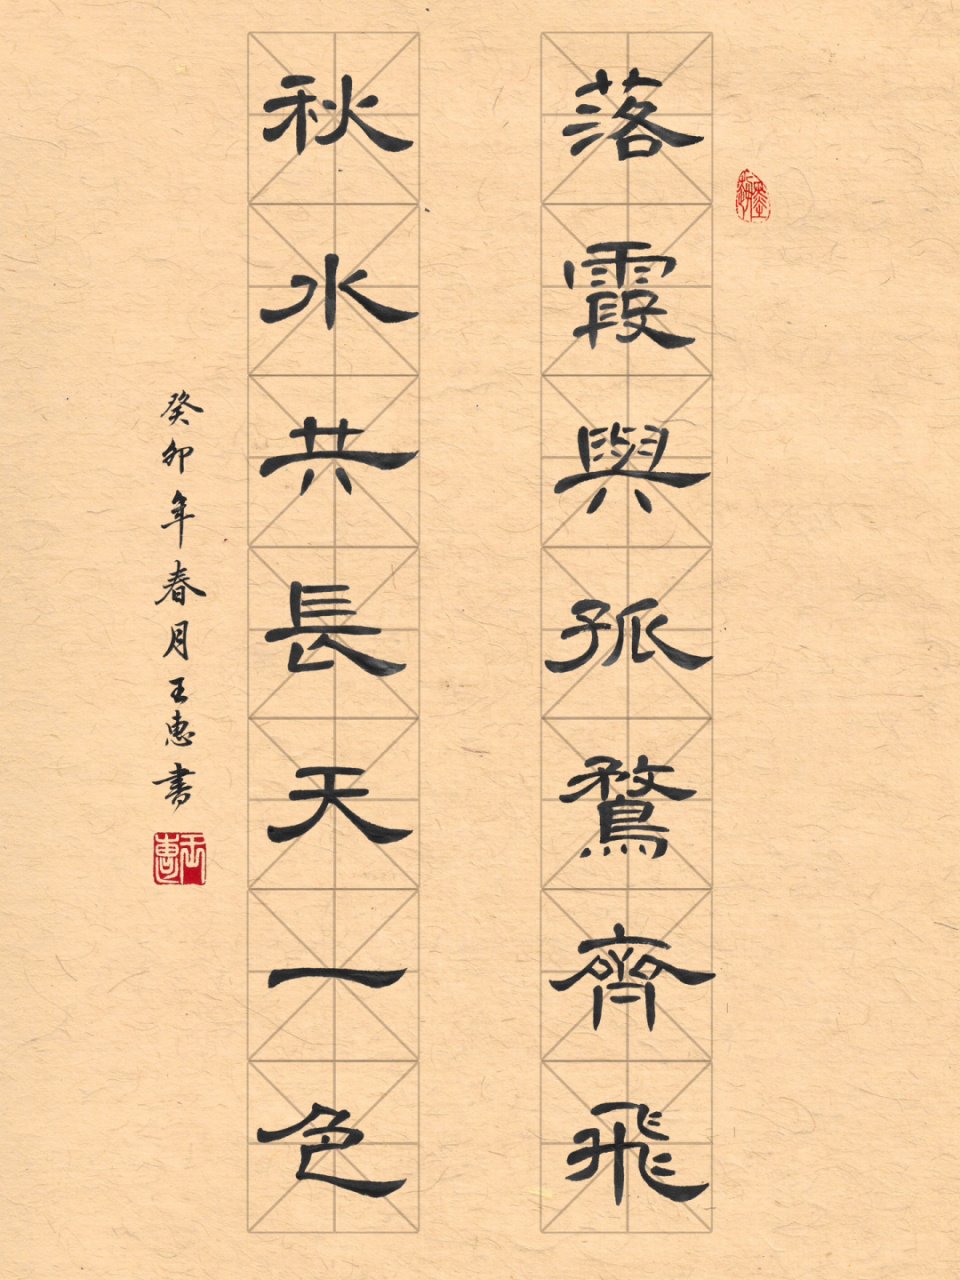 落霞與孤鶩齊飛
秋水共長天一色
癸卯年春月王惠書
王惠